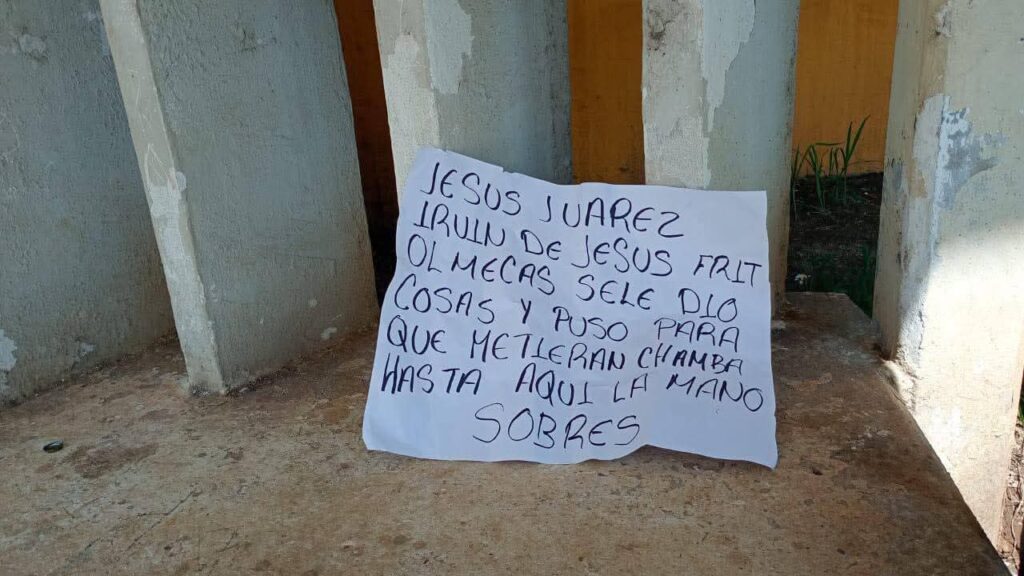 JESUS JUAREZ
IRUIN DE JESUS FRIT
OLMECAS SELE DIO
COSAS Y PUSO PARA
QUE METIERAN CHAMBA
HASTA AQUI LA MANO
SOBRES